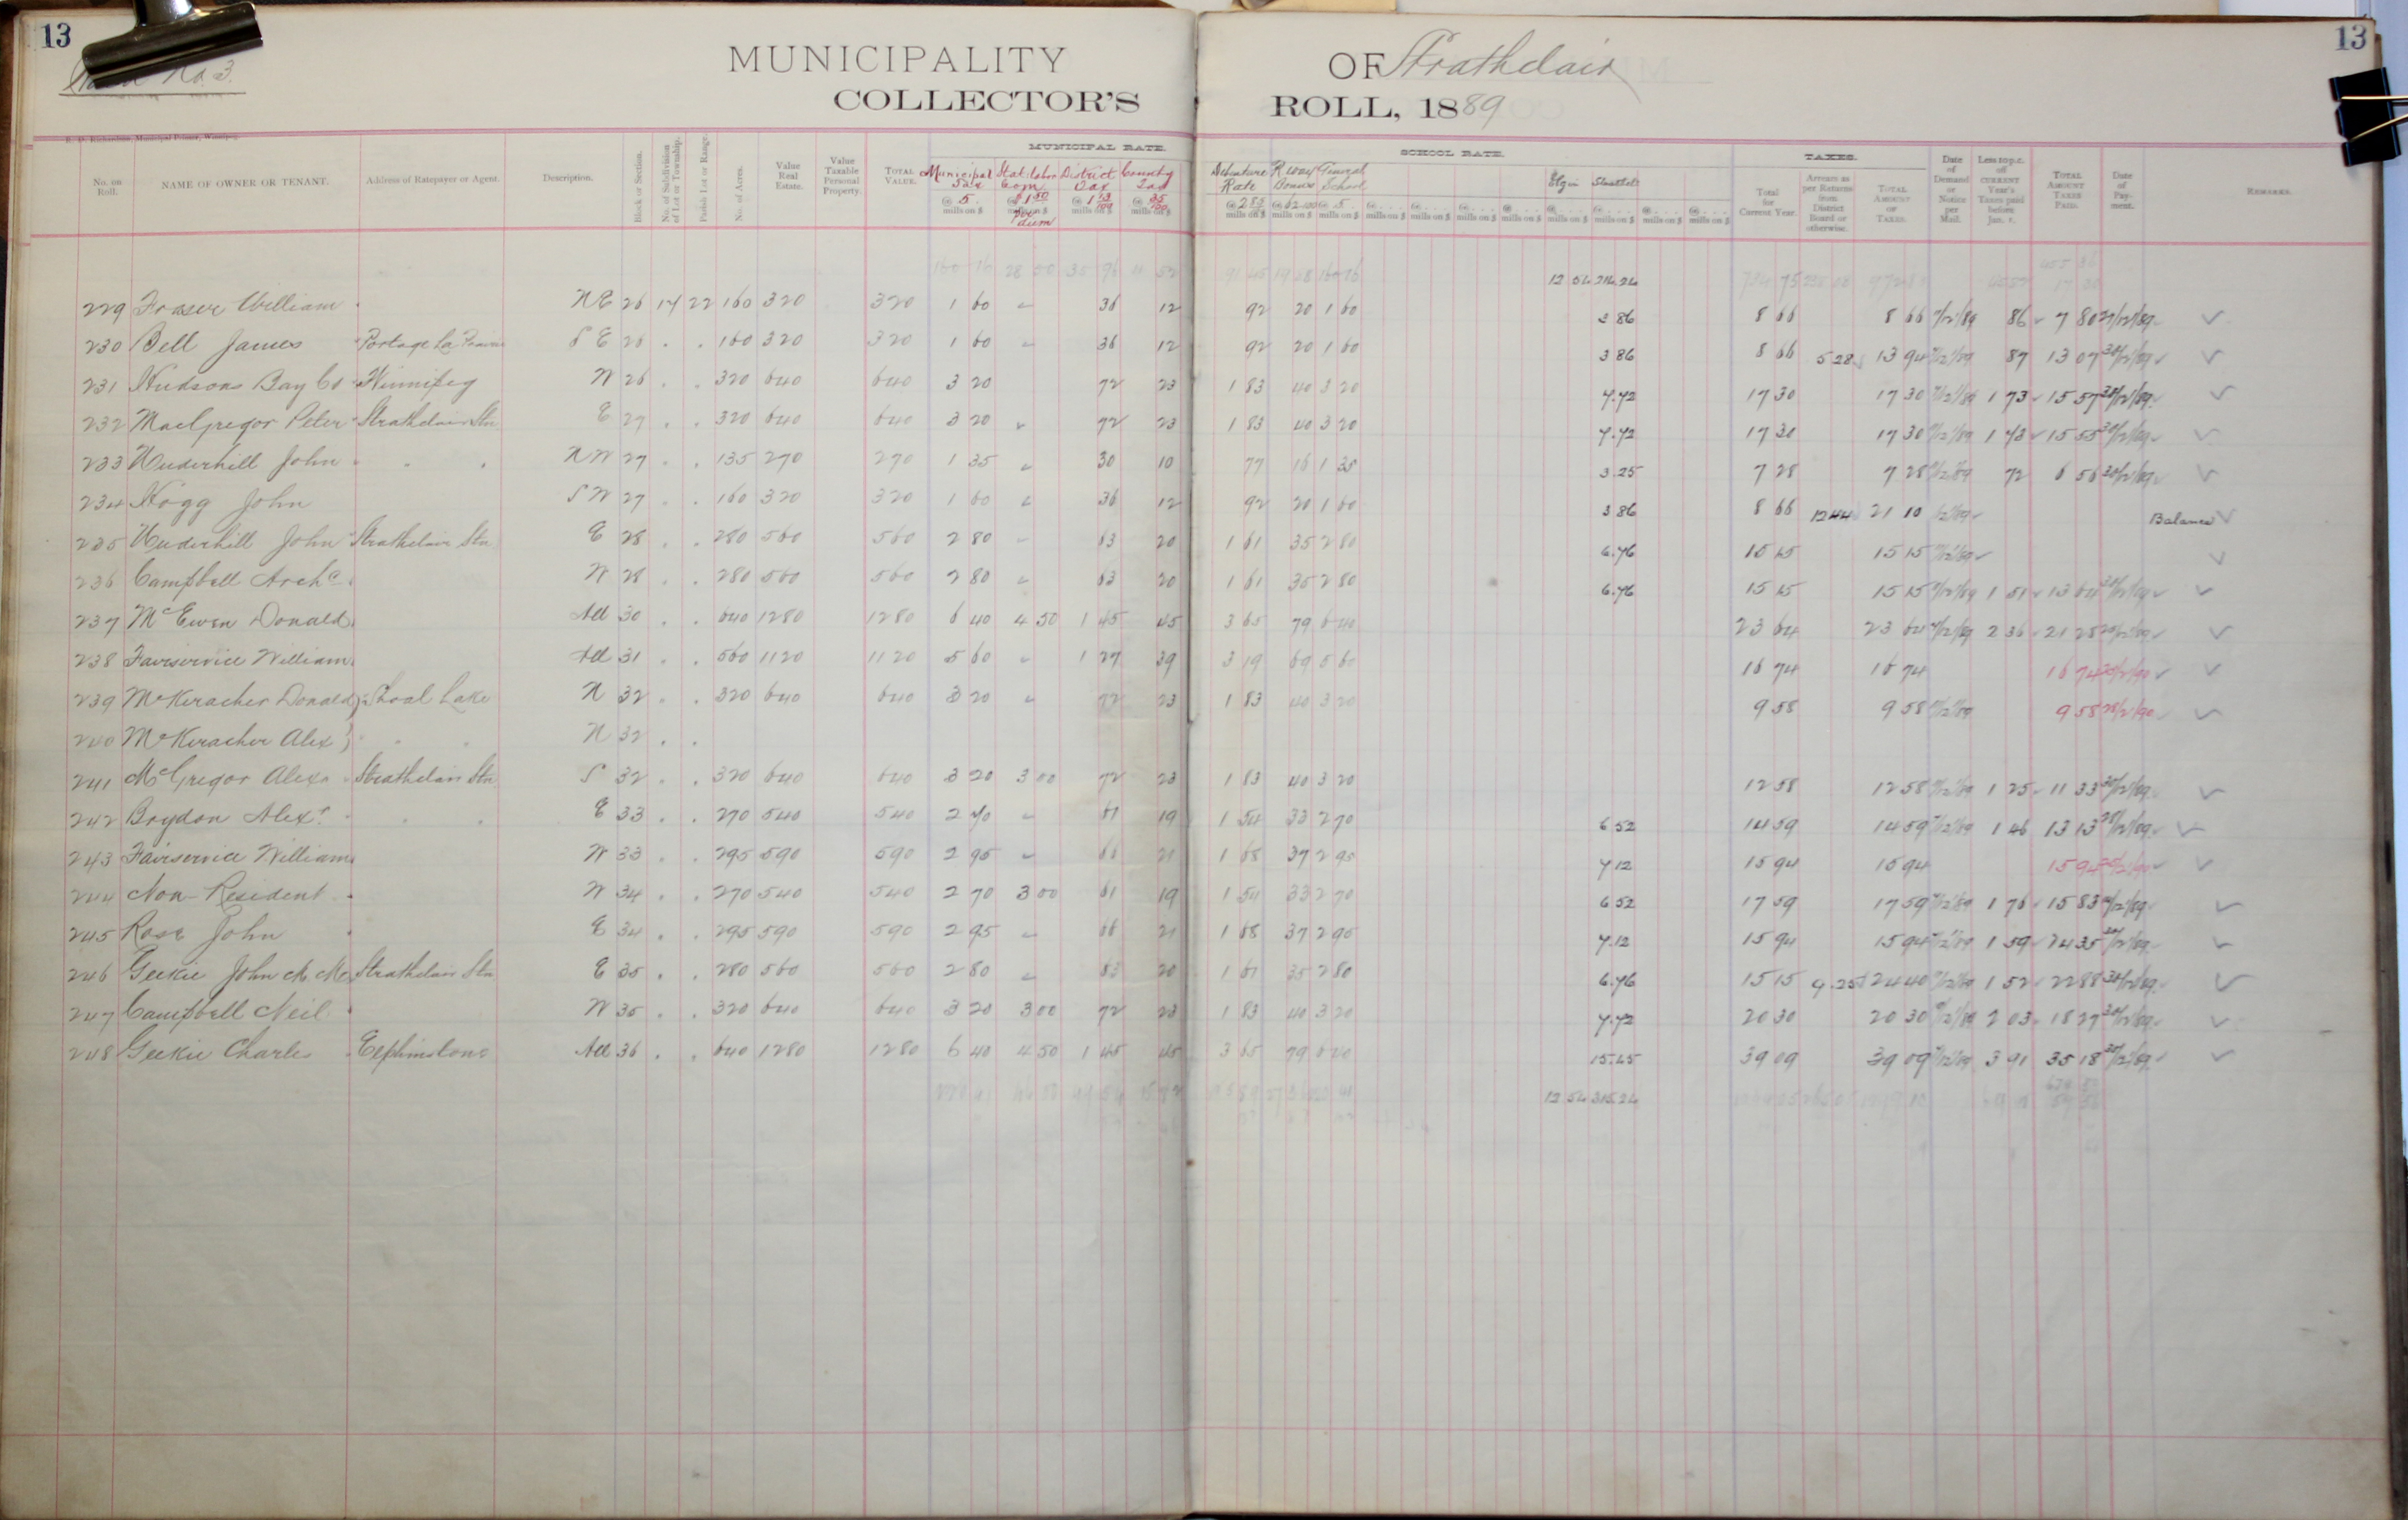 13
13
No. 3.
MUNICIPALITY OF Strathclair
COLLECTOR'S ROLL, 1889
Municipal Printer, Winnipeg.
MUNICIPAL RATE. SCHOOL RATE. TAXES.
No. on Roll. NAME OF OWNER OR TENANT. Address of Ratepayer or Agent. Description. Block or Section. No. of Subdivision of Lot or Township. Parish Lot or Range. No. of Acres. Value Real Estate. Value Taxable Personal Property. TOTAL VALUE. Municipal Tax @ 5 mills on $ Stat. Labor Com. @ $1.50 per diem mills on $ District Tax @ 1 13/100 mills on $ County Tax @ 35/100 mills on $ Debenture Rate @ 2 85 mills on $ R. way Bonus mills on $ General School @ 5 mills on $ Elgin Strathclr Total for Current Year. Arrears as per Returns from District Board or otherwise. TOTAL AMOUNT OF TAXES. Date of Demand or Notice per Mail. Less 10 p.c. off CURRENT Year's Taxes paid before Jan. 1. TOTAL AMOUNT TAXES PAID. Date of Payment. REMARKS.
12 54 216.24
229 Fraser William NE 26 17 22 160 320 320 1 60 " 36 12 92 20 1 60 3 86 8 66 8 66 86 7 80
230 Bell James Portage La Prairie S E 26 . . 160 320 320 1 60 " 36 12 92 20 1 60 3 86 8 66 5 28 13 94 87 13 07 30/12/89
231 Hudsons Bay Co Winnipeg W 26 . . 320 640 640 3 20 72 23 1 83 40 3 20 7.72 17 30 17 30 1 73 15 57 30/12/89
232 MacGregor Peter Strathclair Stn E 27 . . 320 640 640 3 20 " 72 23 1 83 40 3 20 7.72 17 30 17 30 1 73 15 55 30/12/89
233 Underhill John " " NW 27 . . 135 270 270 1 35 " 30 10 77 16 1 35 3.25 7 28 7 28 72 6 56 30/12/89
234 Hogg John S W 27 . . 160 320 320 1 60 " 36 12 92 20 1 60 3 86 8 66 12 44 21 10 Balance
235 Underhill John Strathclair Stn E 28 . . 280 560 560 2 80 " 63 20 1 61 35 2 80 6.76 15 15 15 15
236 Campbell Archd W 28 . . 280 560 560 2 80 " 63 20 1 61 35 2 80 6.76 15 15 15 15 1 51 13 64
237 McEwen Donald All 30 . . 640 1280 1280 6 40 4 50 1 45 45 3 65 79 6 40 23 64 23 64 2 36 21 28
238 Fairservice William All 31 . . 560 1120 1120 5 60 " 1 27 39 3 19 69 5 60 16 74 16 74 16 74
239 McKeracher Donald Shoal Lake N 32 . . 320 640 640 3 20 " 72 23 1 83 40 3 20 9 58 9 58 9 58 28/2/90
240 McKeracher Alex " " N 32 . .
241 McGregor Alexr Strathclair Stn S 32 . . 320 640 640 3 20 3 00 72 23 1 83 40 3 20 12 58 12 58 1 25 11 33 30/12/89
242 Boydon Alexr " " E 33 . . 270 540 540 2 70 " 61 19 1 54 33 2 70 6 52 14 59 14 59 1 46 13 13
243 Fairservice William W 33 . . 295 590 590 2 95 " 66 21 1 68 37 2 95 7 12 15 94 15 94 15 94
244 Non-Resident W 34 . . 270 540 540 2 70 3 00 61 19 1 54 33 2 70 6 52 17 59 17 59 1 76 15 83
245 Rose John E 34 . . 295 590 590 2 95 " 66 21 1 68 37 2 95 7.12 15 94 15 94 1 59 14 35
246 Geekie John Strathclair Stn E 35 . . 280 560 560 2 80 " 63 20 1 61 35 2 80 6.76 15 15 9.25 24 40 1 52 22 88 30/12/89
247 Campbell Neil W 35 . . 320 640 640 3 20 3 00 72 23 1 83 40 3 20 7.72 20 30 20 30 2 03 18 27 30/12/89
248 Geekie Charles Elphinstone All 36 . . 640 1280 1280 6 40 4 50 1 45 45 3 65 79 6 40 15.45 39 09 39 09 3 91 35 18
12 54 315.24